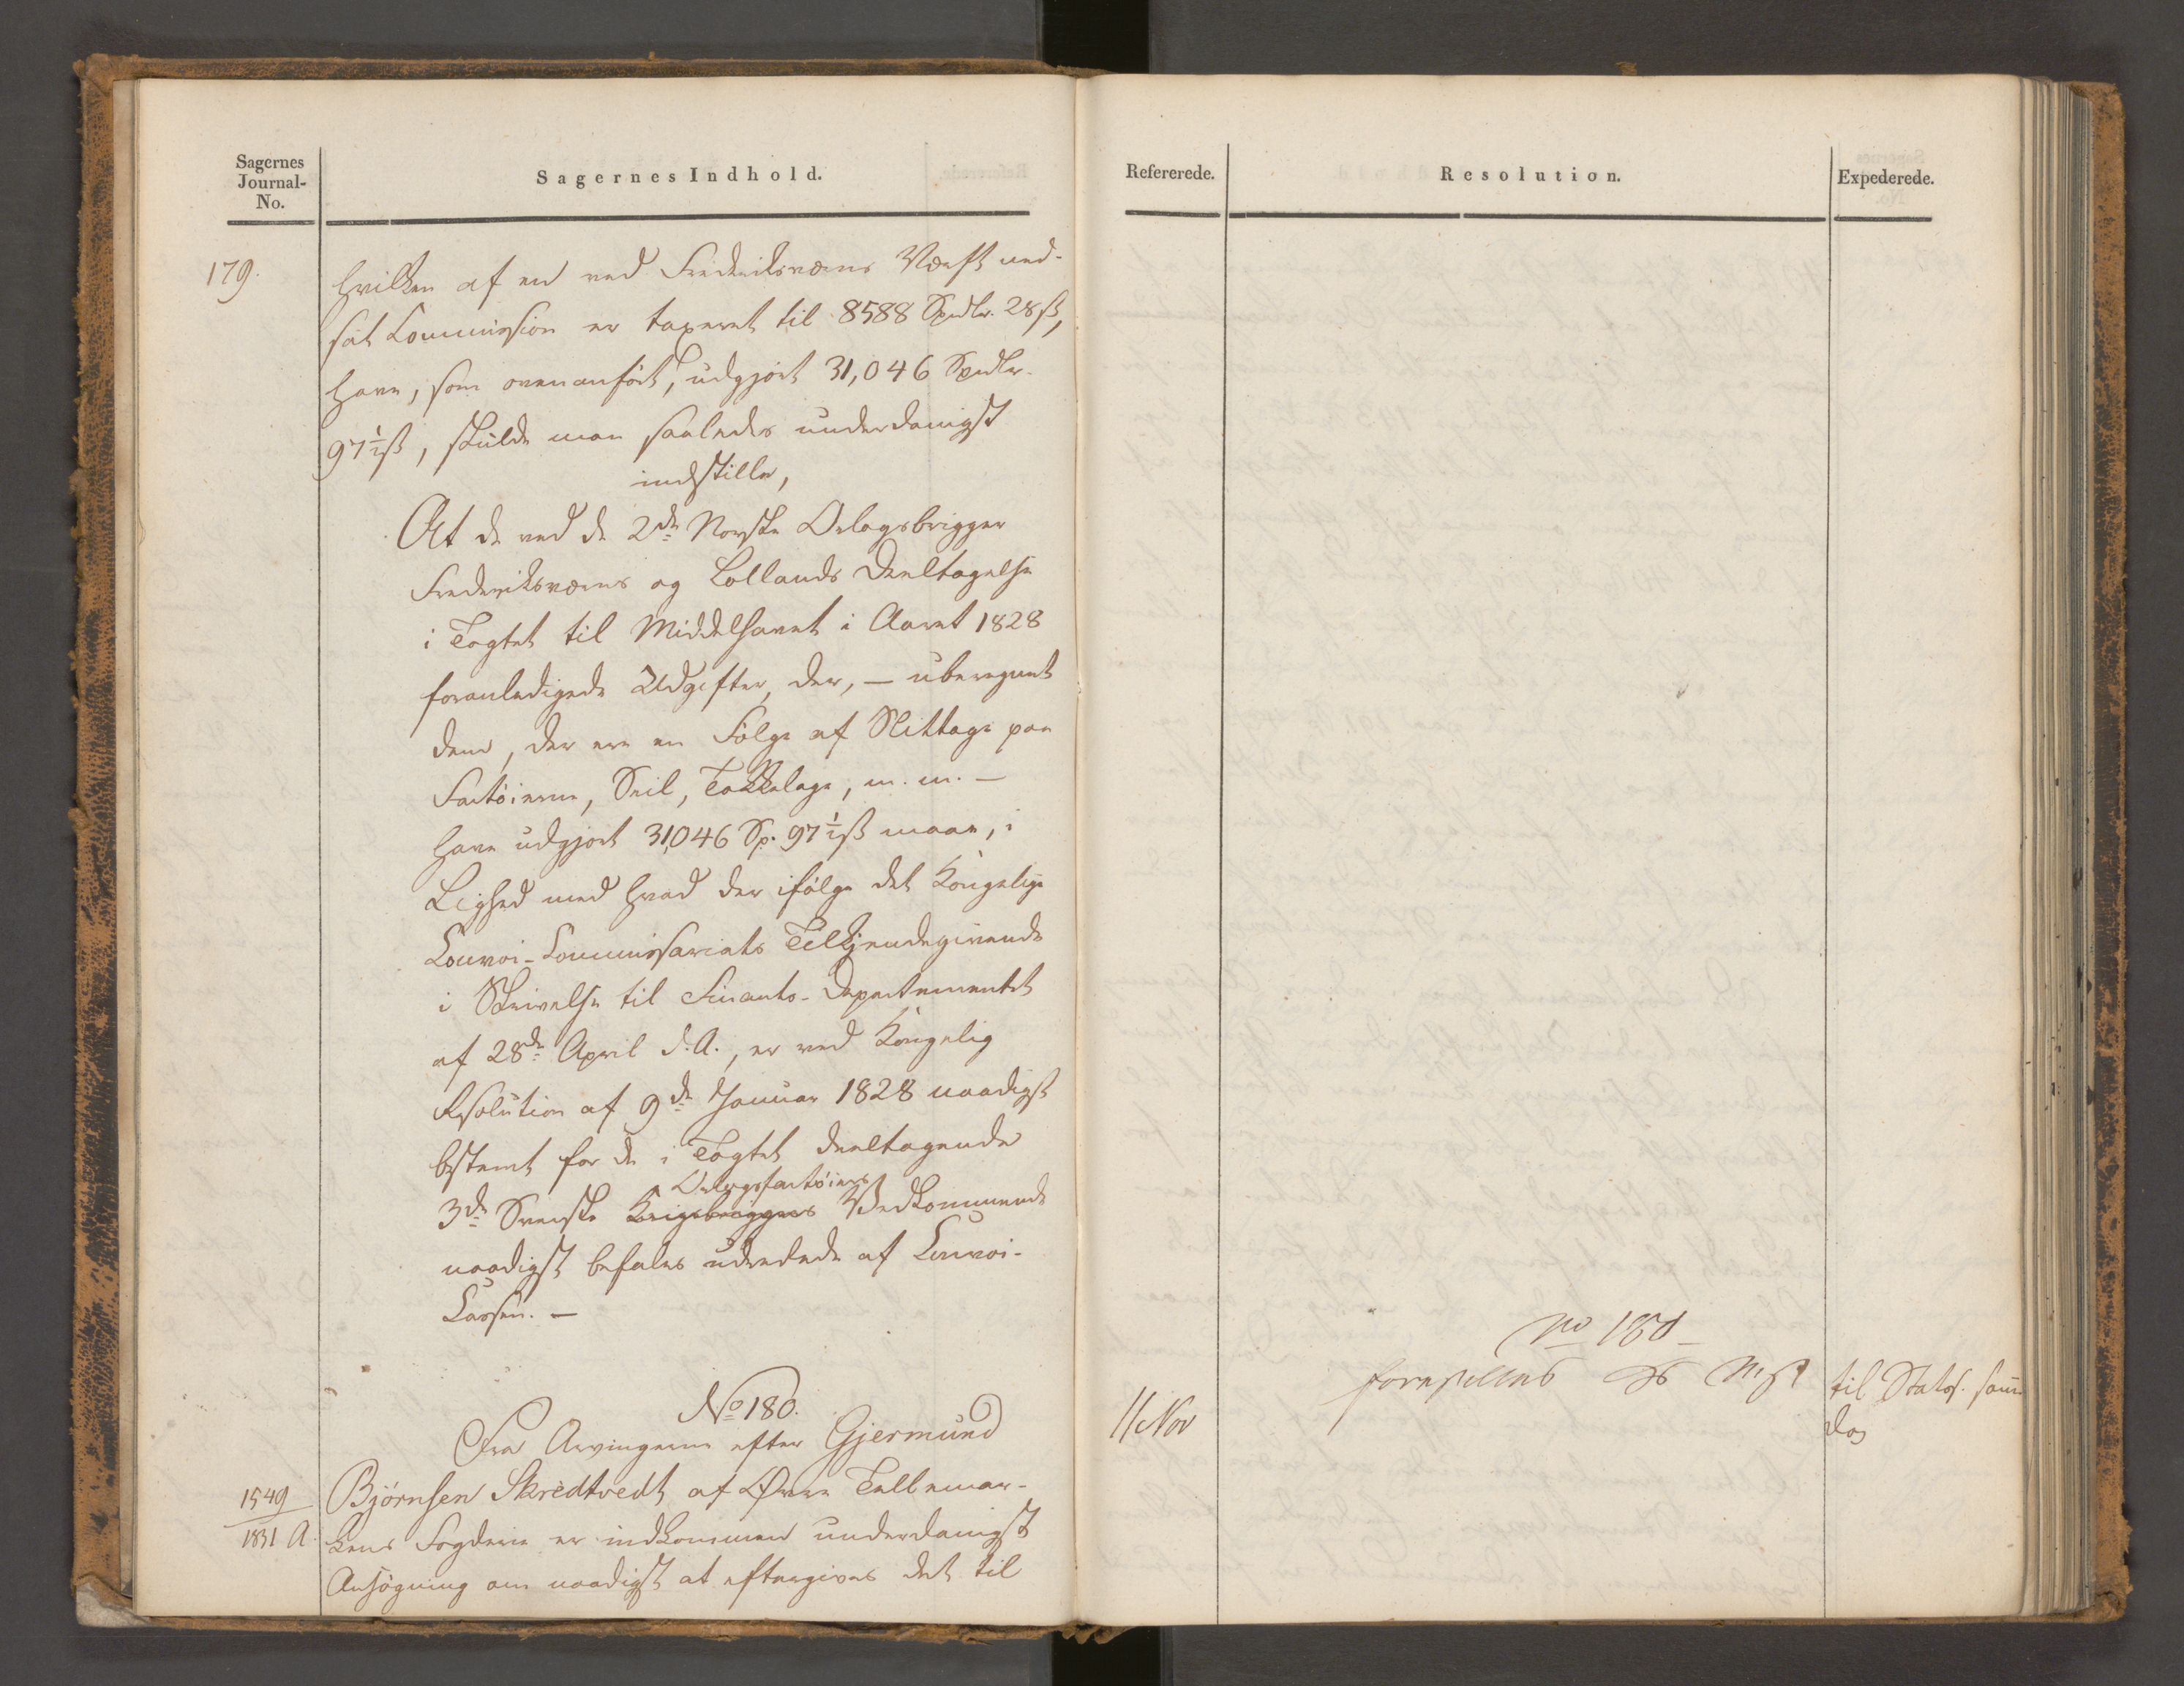 Sagernes
Journal-
No.
Sagernes Indhold.
179.
hvilken af en ved Frederiksværns Værft ned-
sat Commission er taxeret til 8588 Spdlr. 28 ß,
have, som ovenanført, udgjort 31,046 Spdlr.
97½ ß, skulde man saaledes underdanigst
indstille,
At de ved de 2de Norske Orlogsbrigger
Frederiksværns og Lollands Deeltagelse
i Togtet til Middelhavet i Aaret 1828
foranledigede Udgifter, der, — uberegnet
dem, der ere en Følge af Slittage paa
Fartöierne, Seil, Takkelage, m. m. —
have udgjort 31,046 Sp. 97½ ß maae, i
Lighed med hvad der ifølge det Kongelige
Convoi-Commissariats Tilkjendegivende
i Skrivelse til Finants-Departementet
af 28de April d. A., er ved Kongelig
Resolution af 9de Januar 1828 naadigst
bestemt for de i Togtet deeltagende
Orlogsfartöiers
3de Svenske Krigsbriggers Vedkommende
naadigst befales udredede af Convoi-
Cassen. —
No 180.
Fra Arvingerne efter Gjermund
1549
1831 A.
Björnsen Skredtvedt af Øvre Tellemar-
kens Fogderie er indkommen underdanigst
Ansögning om naadigst at eftergives det til
Refererede.
Resolution.
Expederede.
No 180
11 Nov
til Statss. samme
Dag